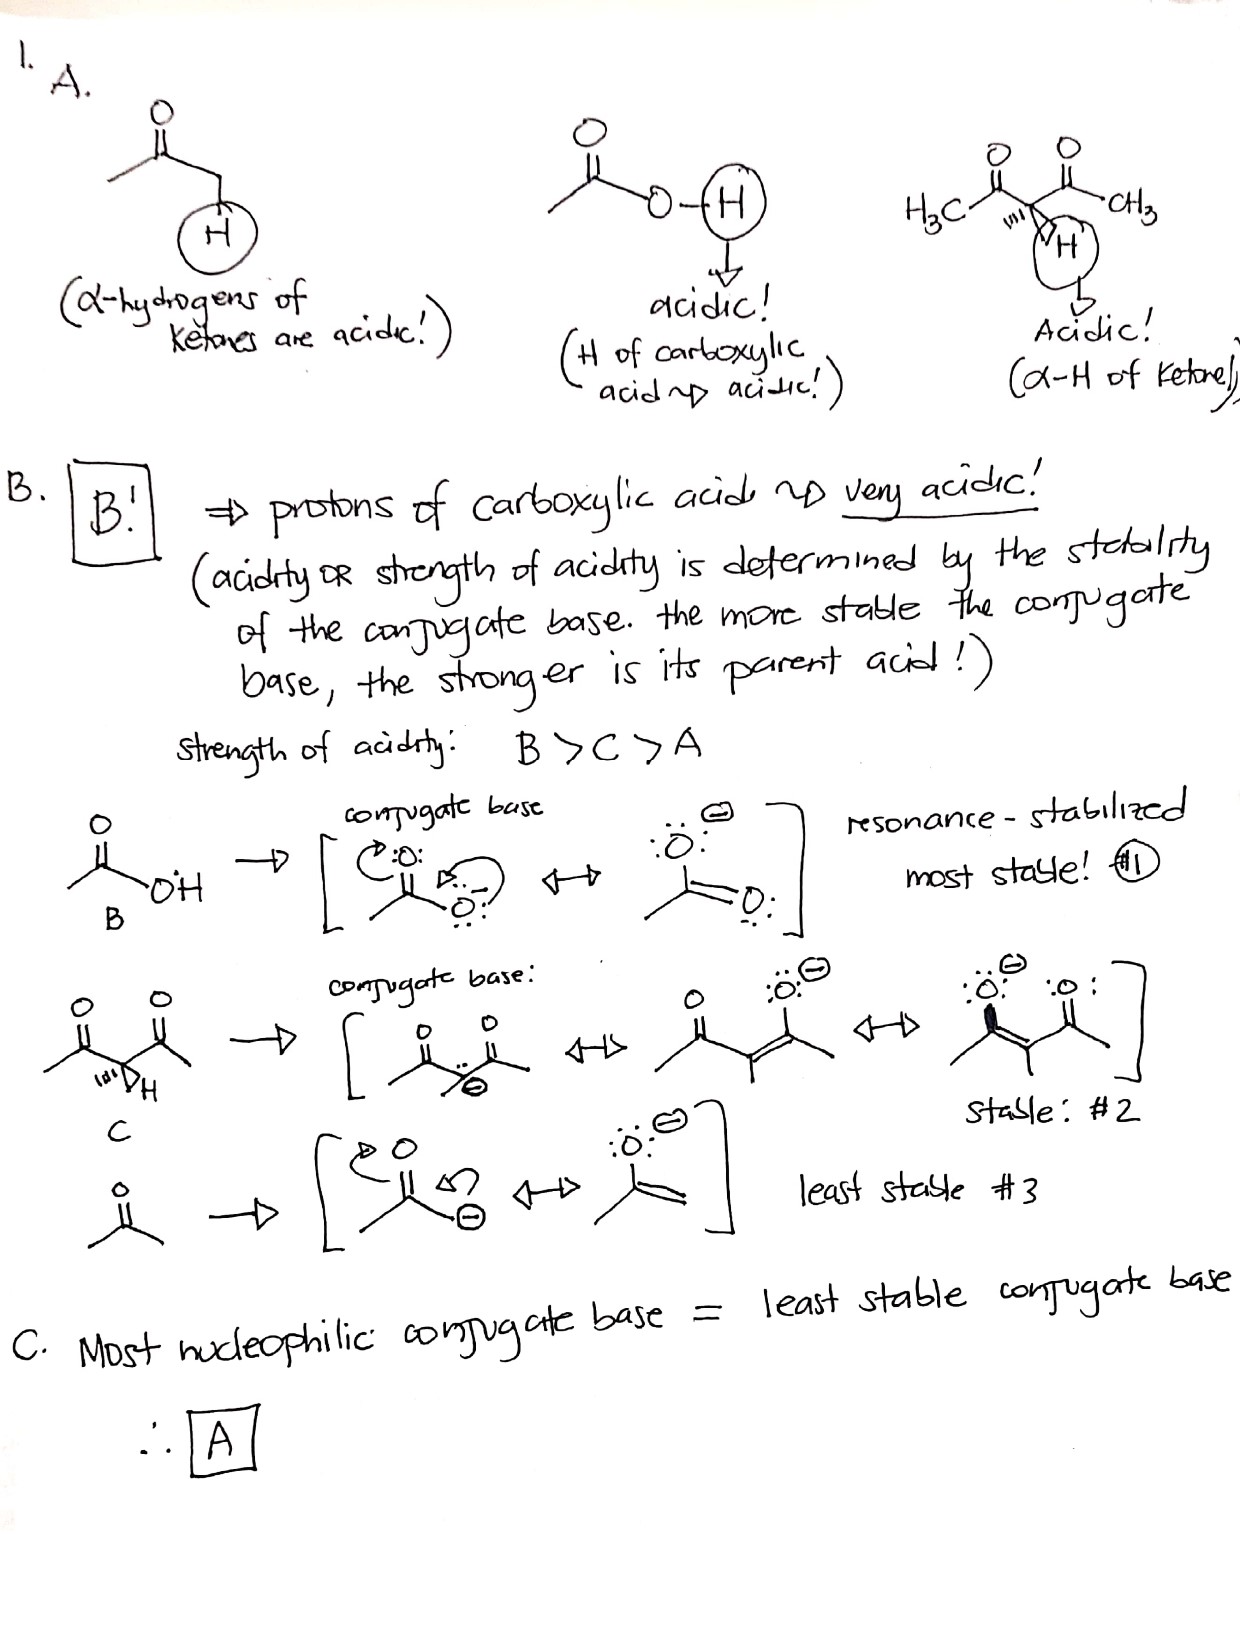 1.
A.
O
H
(α-hydrogens of
ketones are acidic!)
O
O-H
acidic!
(H of carboxylic
acid ⇝ acidic!)
O O
H₃C CH₃
H
Acidic!
(α-H of ketone)
B. B! ⇒ protons of carboxylic acid ⇝ very acidic!
(acidity OR strength of acidity is determined by the stability
of the conjugate base. the more stable the conjugate
base, the stronger is its parent acid!)
strength of acidity: B > C > A
conjugate base
O
OH
B
→ [ :O: O: ↔ :O: ⊖ O: ]
resonance-stabilized
most stable! #1
conjugate base:
O O
H
C
→ [ O O ⊖ ↔ O :O: ⊖ ↔ :O: ⊖ :O: ]
stable: #2
O
→ [ O ⊖ ↔ :O: ⊖ ]
least stable #3
C. Most nucleophilic conjugate base = least stable conjugate base
∴ A